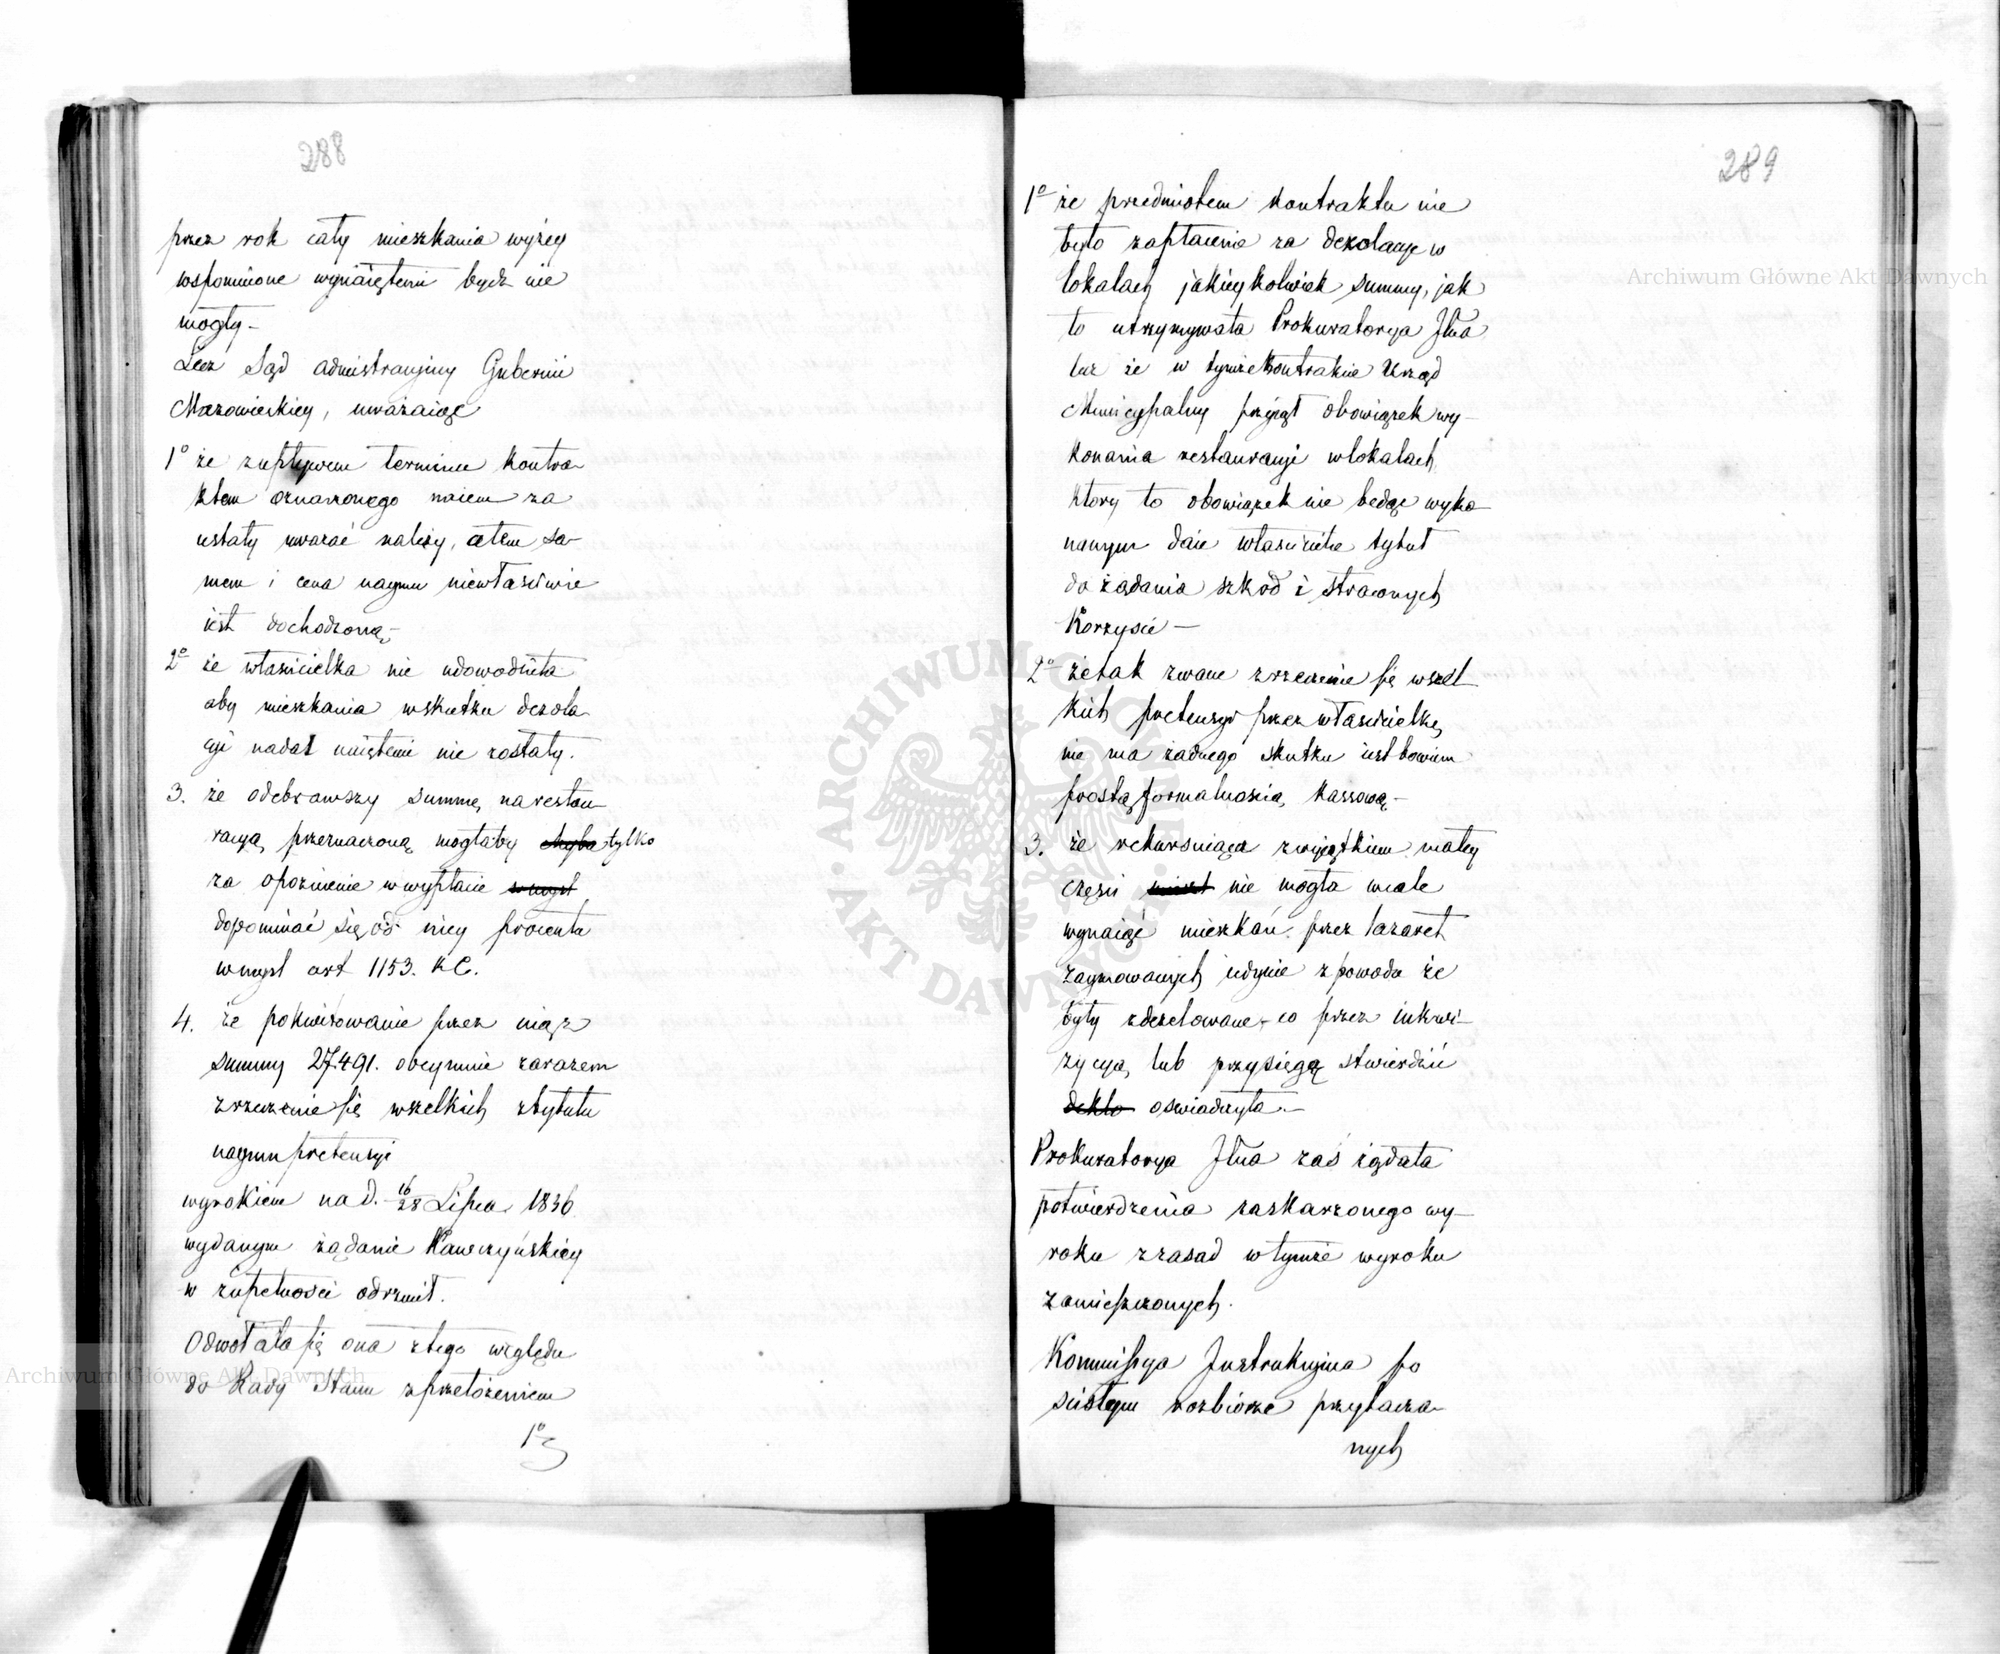 288
przez rok cały mieszkania wyżey
wspomnione wynaiętemi bydź nie
mogły.—
Lecz Sąd admistracyiny Gubernii
Mazowieckiey, uważaiąc
1° że z upływem terminu kontra-
ktem oznaczonego naiem za
ustały uważać należy, a tem sa-
mem i cena naymu niewłaściwie
iest dochodzoną,—
2° że właścicielka nie udowodniła
aby mieszkania wskutku dezola-
cyi nadal naiętemi nie zostały.
3. że odebrawszy summę na restau-
racyą przeznaczoną mogłaby chyba tylko
za opoznienie w wypłacie
dopominać się od niey procentu
w mysl art 1153. KC.
4. że pokwitowanie przez nią z
summy 27.491. obeymuie zarazem
zrzeczenie się wszelkich z tytułu
naymu pretensyi
wyrokiem na d. 16/28 Lipca 1836
wydanym żądanie Kawczyńskiey
w zupełności odrzucił.
Odwołała się ona z tego względu
do Rady Stanu z przełożeniem
1°
289
1° że przedmiotem kontraktu nie
było zapłacenie za dezolacye w
lokalach jakieykolwiek summy, jak
to utrzymywała Prokuratorya Jlna
lecz że w tymże kontrakcie Urząd
Municypalny przyiął obowiązek wy-
konania restauracyi w lokalach
ktory to obowiązek nie będąc wyko-
nanym daie właścicielce tytuł
do żądania szkod i straconych
Korzyści —
2° że tak zwane zrzeczenie się wszel-
kich pretensyi przez właścicielkę,
nie ma żadnego skutku iest bowiem
prostą formalnością kassową.—
3. że rekursuiąca z wyiątkiem małey
części nie mogła wcale
wynaiąć mieszkań przez lazaret
zaymowanych iedynie z powodu że
były zdezelowane, co przez inkwi-
zycyą lub przysięgą stwierdzić
oswiadczyła.—
Prokuratorya Jlna zaś żądała
potwierdzenia zaskarzonego wy-
roku z zasad w tymże wyroku
zamieszczonych.
Kommissya Instrukcyina po
scisłym rozbiorze przytacza-
nych
Archiwum Główne Akt Dawnych
Archiwum Główne Akt Dawnych
ARCHIWUM GŁÓWNE · AKT DAWNYCH ·